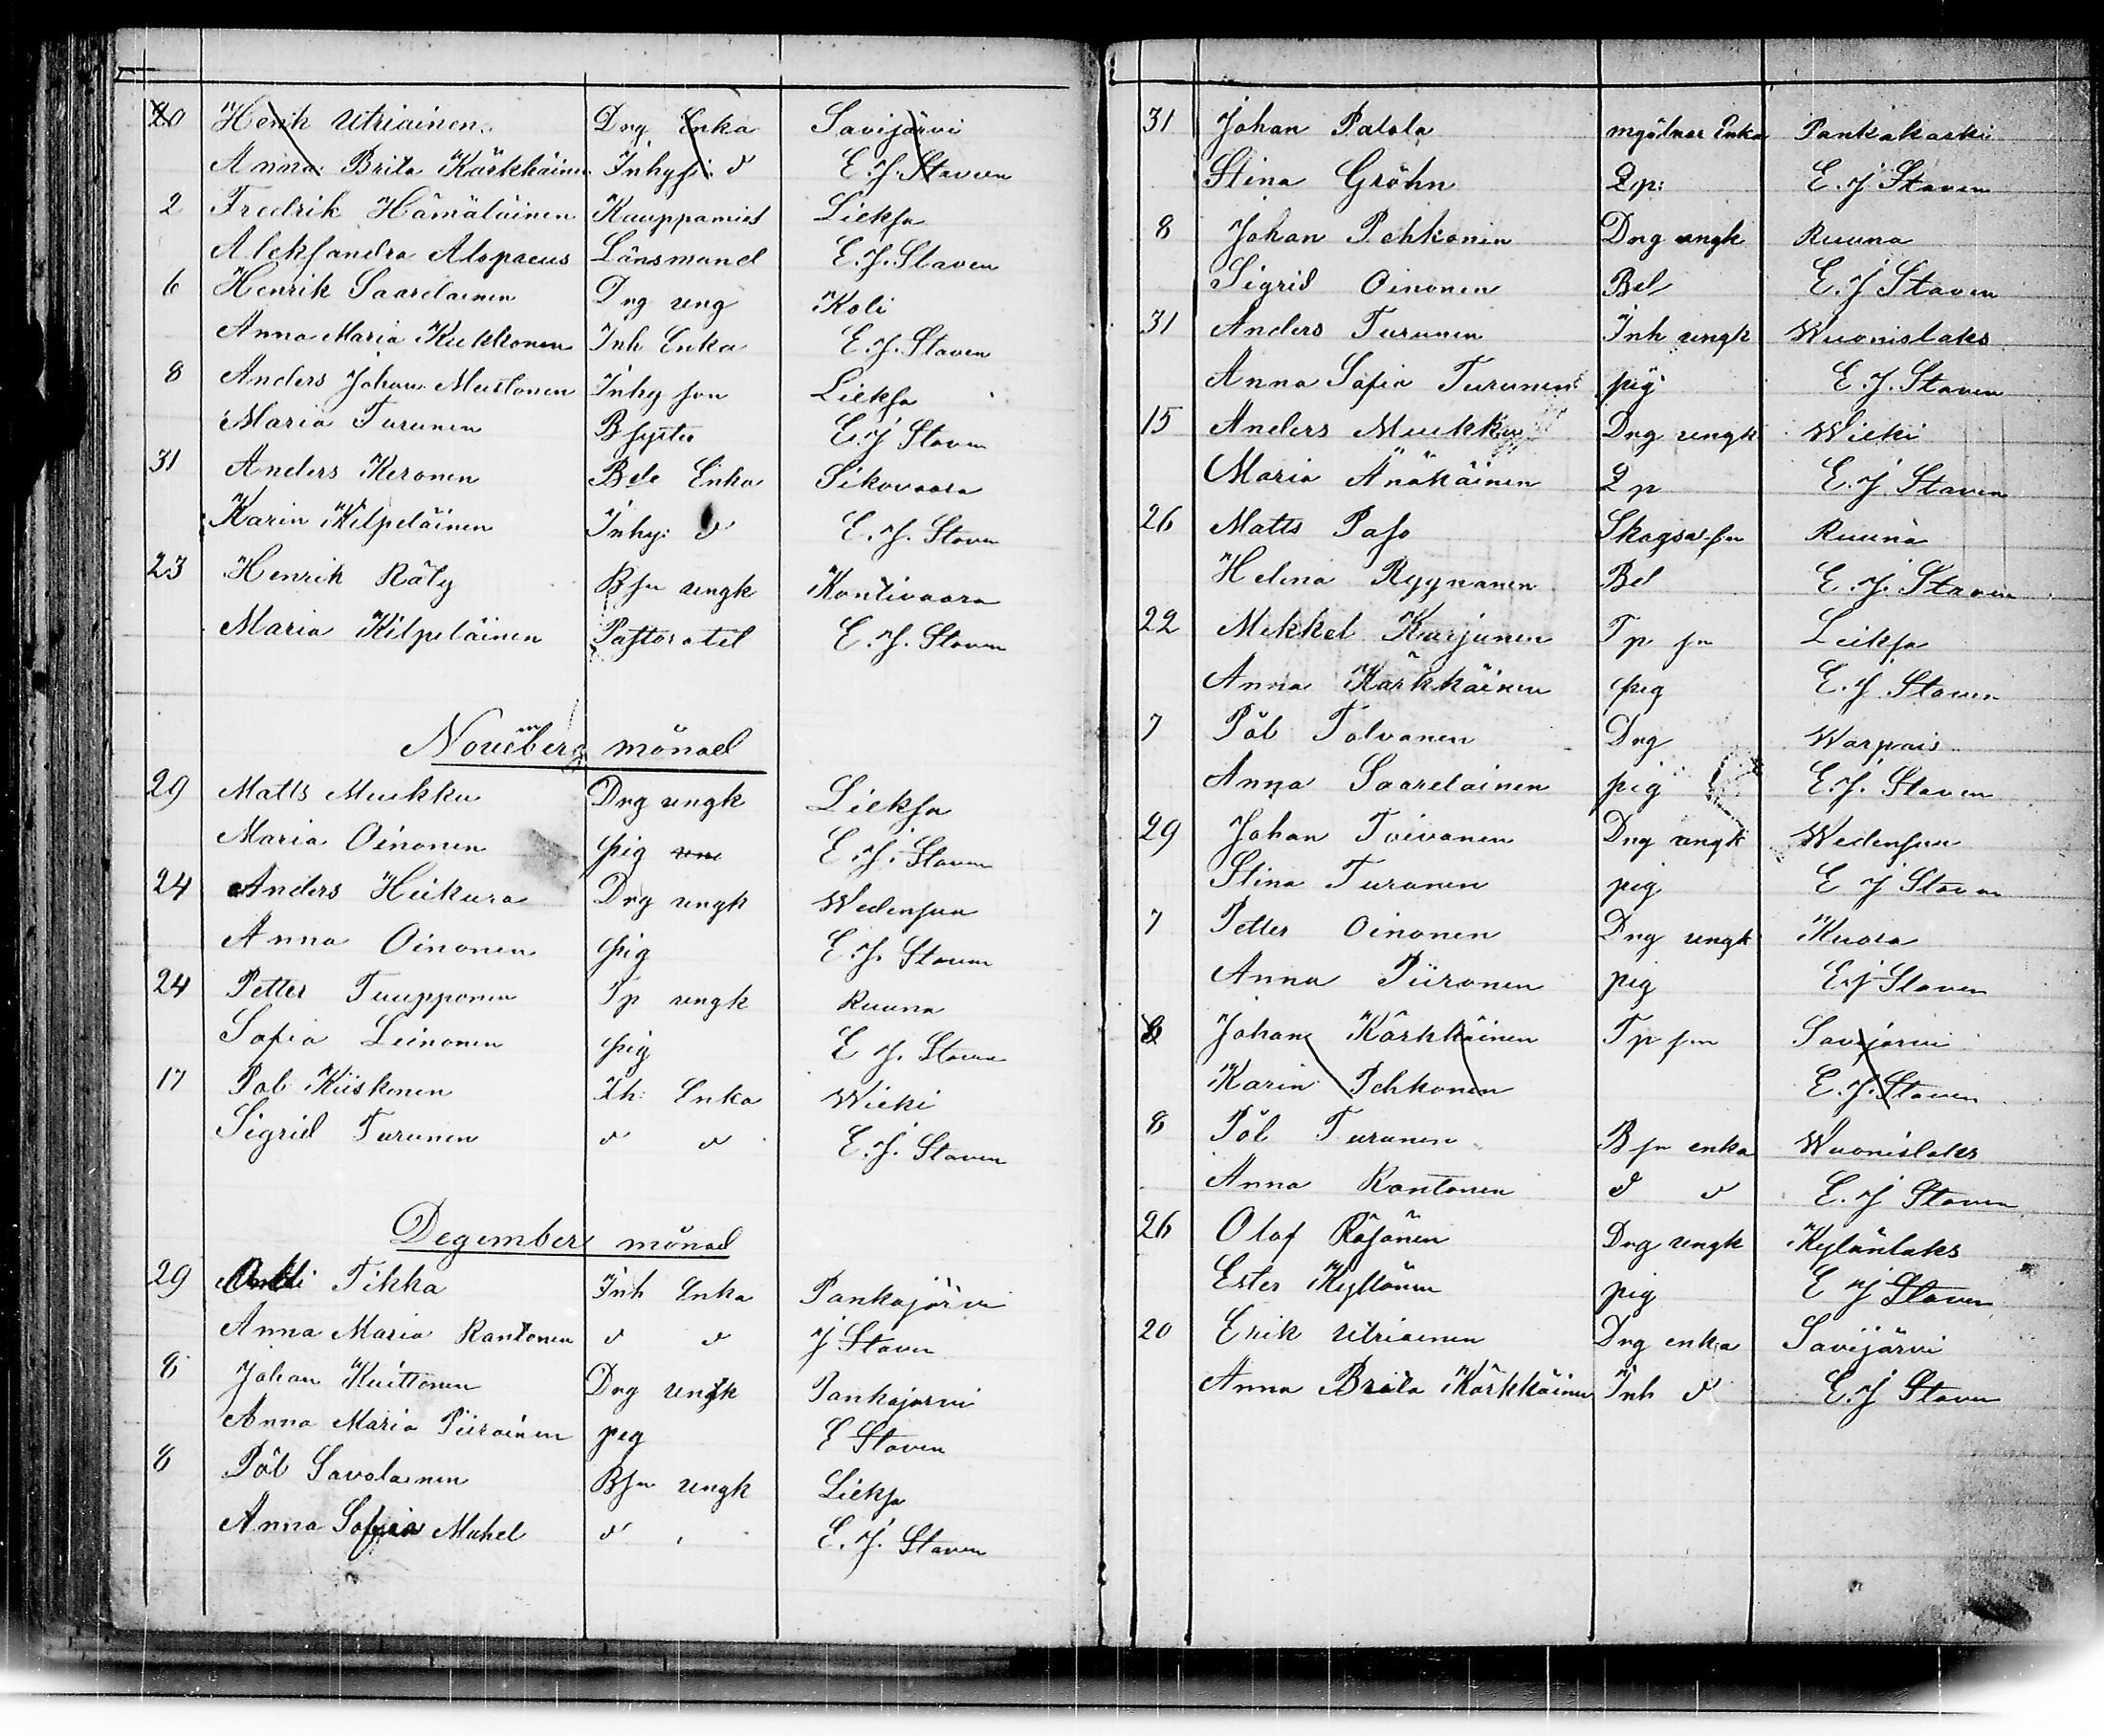 20 Henik Utriainen Dng Enka Savijärvi
Anna Brita Kärkkäinen Inhys: d E. J. Staven
2 Fredrik Hämäläinen Kauppamies Lieksa
Aleksandra Alopaeus Länsmand E. J. Staven
6 Henrik Saarelainen Dng ung Koli
Anna Maria Kukkonen Inh Enka E. J. Staven
8 Anders Johan Mustonen Inhy son Lieksa
Maria Turunen B syster E. J Staven
31 Anders Keronen Bde Enka Sikovaara
Karin Kilpeläinen Inhy: d E. J. Staven
23 Henrik Räty Bsn ungk Kontivaara
Maria Kilpeläinen Pastoratel E. J. Staven
November månad
29 Matts Mukku Dng ungk Lieksa
Maria Oinonen pig E. J. Staven
24 Anders Heikura Dng ungk Wedensuu
Anna Oinonen pig E. J. Staven
24 Petter Tuupponen Tp ungk Ruuna
Sofia Leinonen pig E. J. Staven
17 Pål Kiiskonen Ih: Enka Wieki
Sigrid Turunen d d E. J. Staven
Degember månad
29 Antti Tikka Inh Enka Pankajärvi
Anna Maria Rantonen d d J Staven
8 Johan Kuittonen Dng ungk Pankajarvi
Anna Maria Piirainen peg E Staven
8 Pål Savolainen Bsn ungk Lieksa
Anna Sofia Mahel d E. J. Staven
31 Johan Palola mjölnar Enka Pankakaski
Stina Gröhn Qp: E. J Staven
8 Johan Pehkonen Dng ungk Ruuna
Sigrid Oinonen Bd E. J Staven
31 Anders Turunen Inh ungk Wuonislaks
Anna Sofia Turunen pig E. J. Staven
15 Anders Mukku Dng ungk Wieki
Maria Änäkäinen Qp E. J. Staven
26 Matts Paso Ruuna
Helena Ryynänen Bd E. J. Staven
22 Mikkel Karjunen Tp sn Lieksa
Anna Kärkkäinen pig E. J Staven
7 Pål Tolvanen Dng Warpais
Anna Saarelainen pig E. J. Staven
29 Johan Toivanen Dng ungk Wedensuu
Stina Turunen pig E J Staven
7 Petter Oinonen Dng ungk Kuora
Anna Piironen pig E. J Staven
8 Johan Kärkkäinen Tp sn Savijärvi
Karin Pehkonen E. J. Staven
8 Pål Turunen B sn enka Wuonislaks
Anna Rantonen d d E. J Staven
26 Olof Räsänen Dng ungk Kylänlaks
Ester Kyllönen pig E J Staven
20 Erik Utriainen Dng enka Savijärvi
Anna Brita Kärkkäinen Inh d E. J Staven